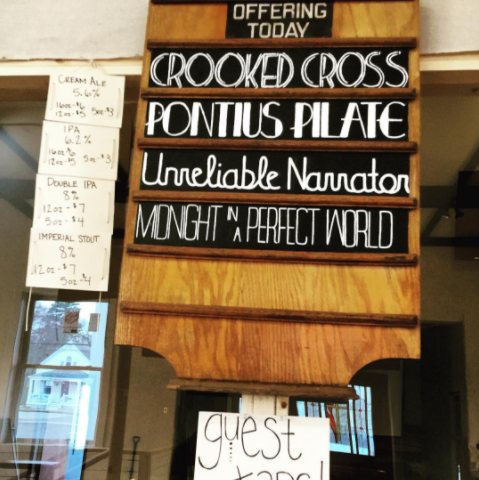 OFFERING
TODAY
CROOKED CROSS
PONTIUS PILATE
Unreliable Narrator
MIDNIGHT IN A PERFECT WORLD
CREAM ALE
5.6%
16oz - $6
12oz - $5 5oz - $3
IPA
6.2%
16oz - $6
12oz - $5 5oz - $3
DOUBLE IPA
8%
12oz - $7
5oz - $4
IMPERIAL STOUT
8%
12oz - $7
5oz - $4
guest
taps!